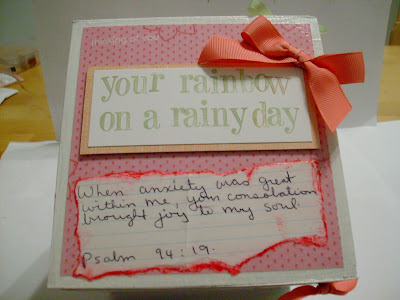 your rainbow
on a rainy day
When anxiety was great
within me, your consolation
brought joy to my soul.
Psalm 94:19.